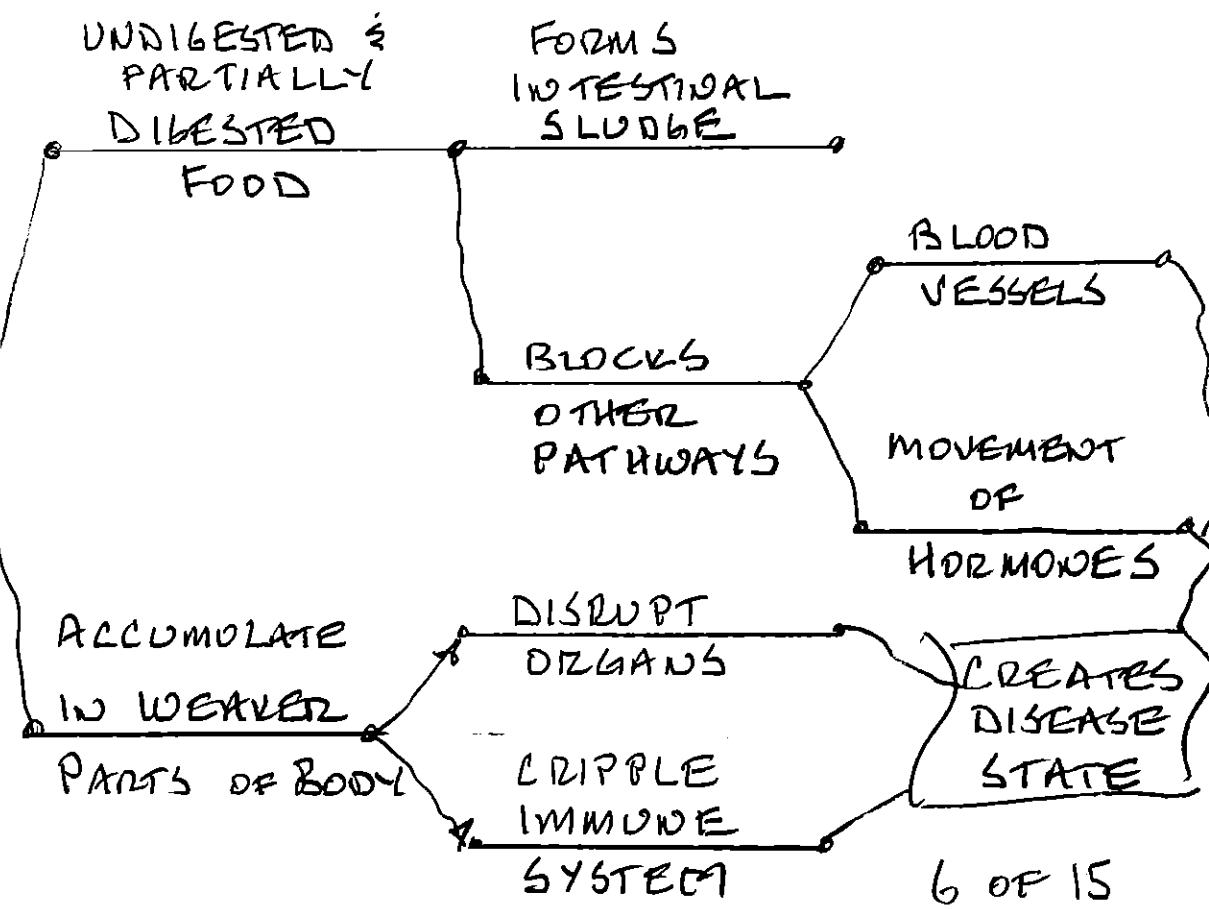 UNDIGESTED &
PARTIALLY
DIGESTED
FOOD
FORMS
INTESTINAL
SLUDGE
BLOCKS
OTHER
PATHWAYS
BLOOD
VESSELS
MOVEMENT
OF
HORMONES
ACCUMULATE
IN WEAKER
PARTS OF BODY
DISRUPT
ORGANS
CRIPPLE
IMMUNE
SYSTEM
CREATES
DISEASE
STATE
6 OF 15